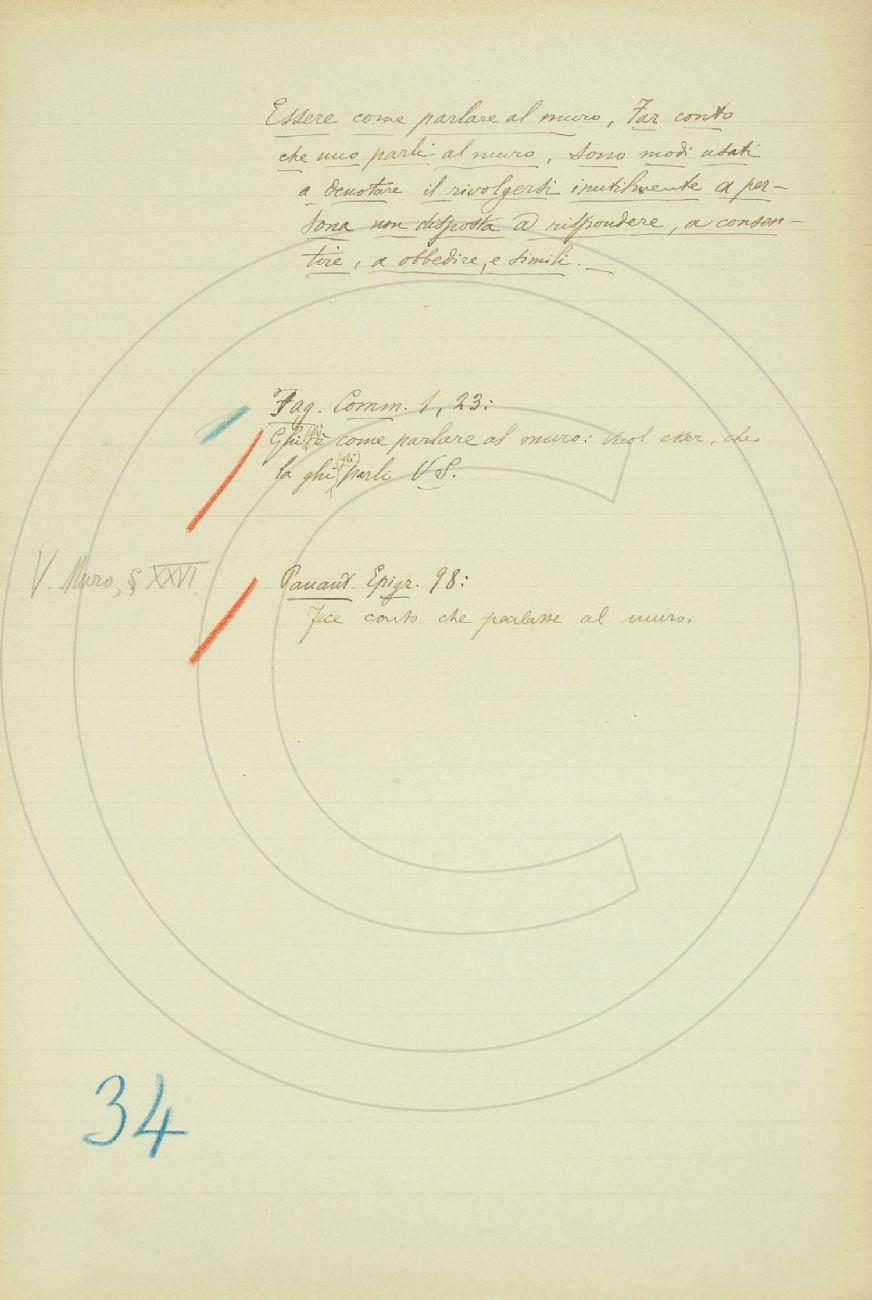 Essere come parlare al muro, Far conto
che uno parli al muro, sono modi usati
a denotare il rivolgersi inutilmente a per-
sona non disposta a rispondere, a consen-
tire, a obbedire, e simili. —
Fag. Comm. 1, 23:
Ghi (gli) è come parlare al muro: vuol esser, che
la ghi (gli) parli V S.
V. Muro, § XXVI.
Panant. Epigr. 98:
Fece conto che parlasse al muro.
34